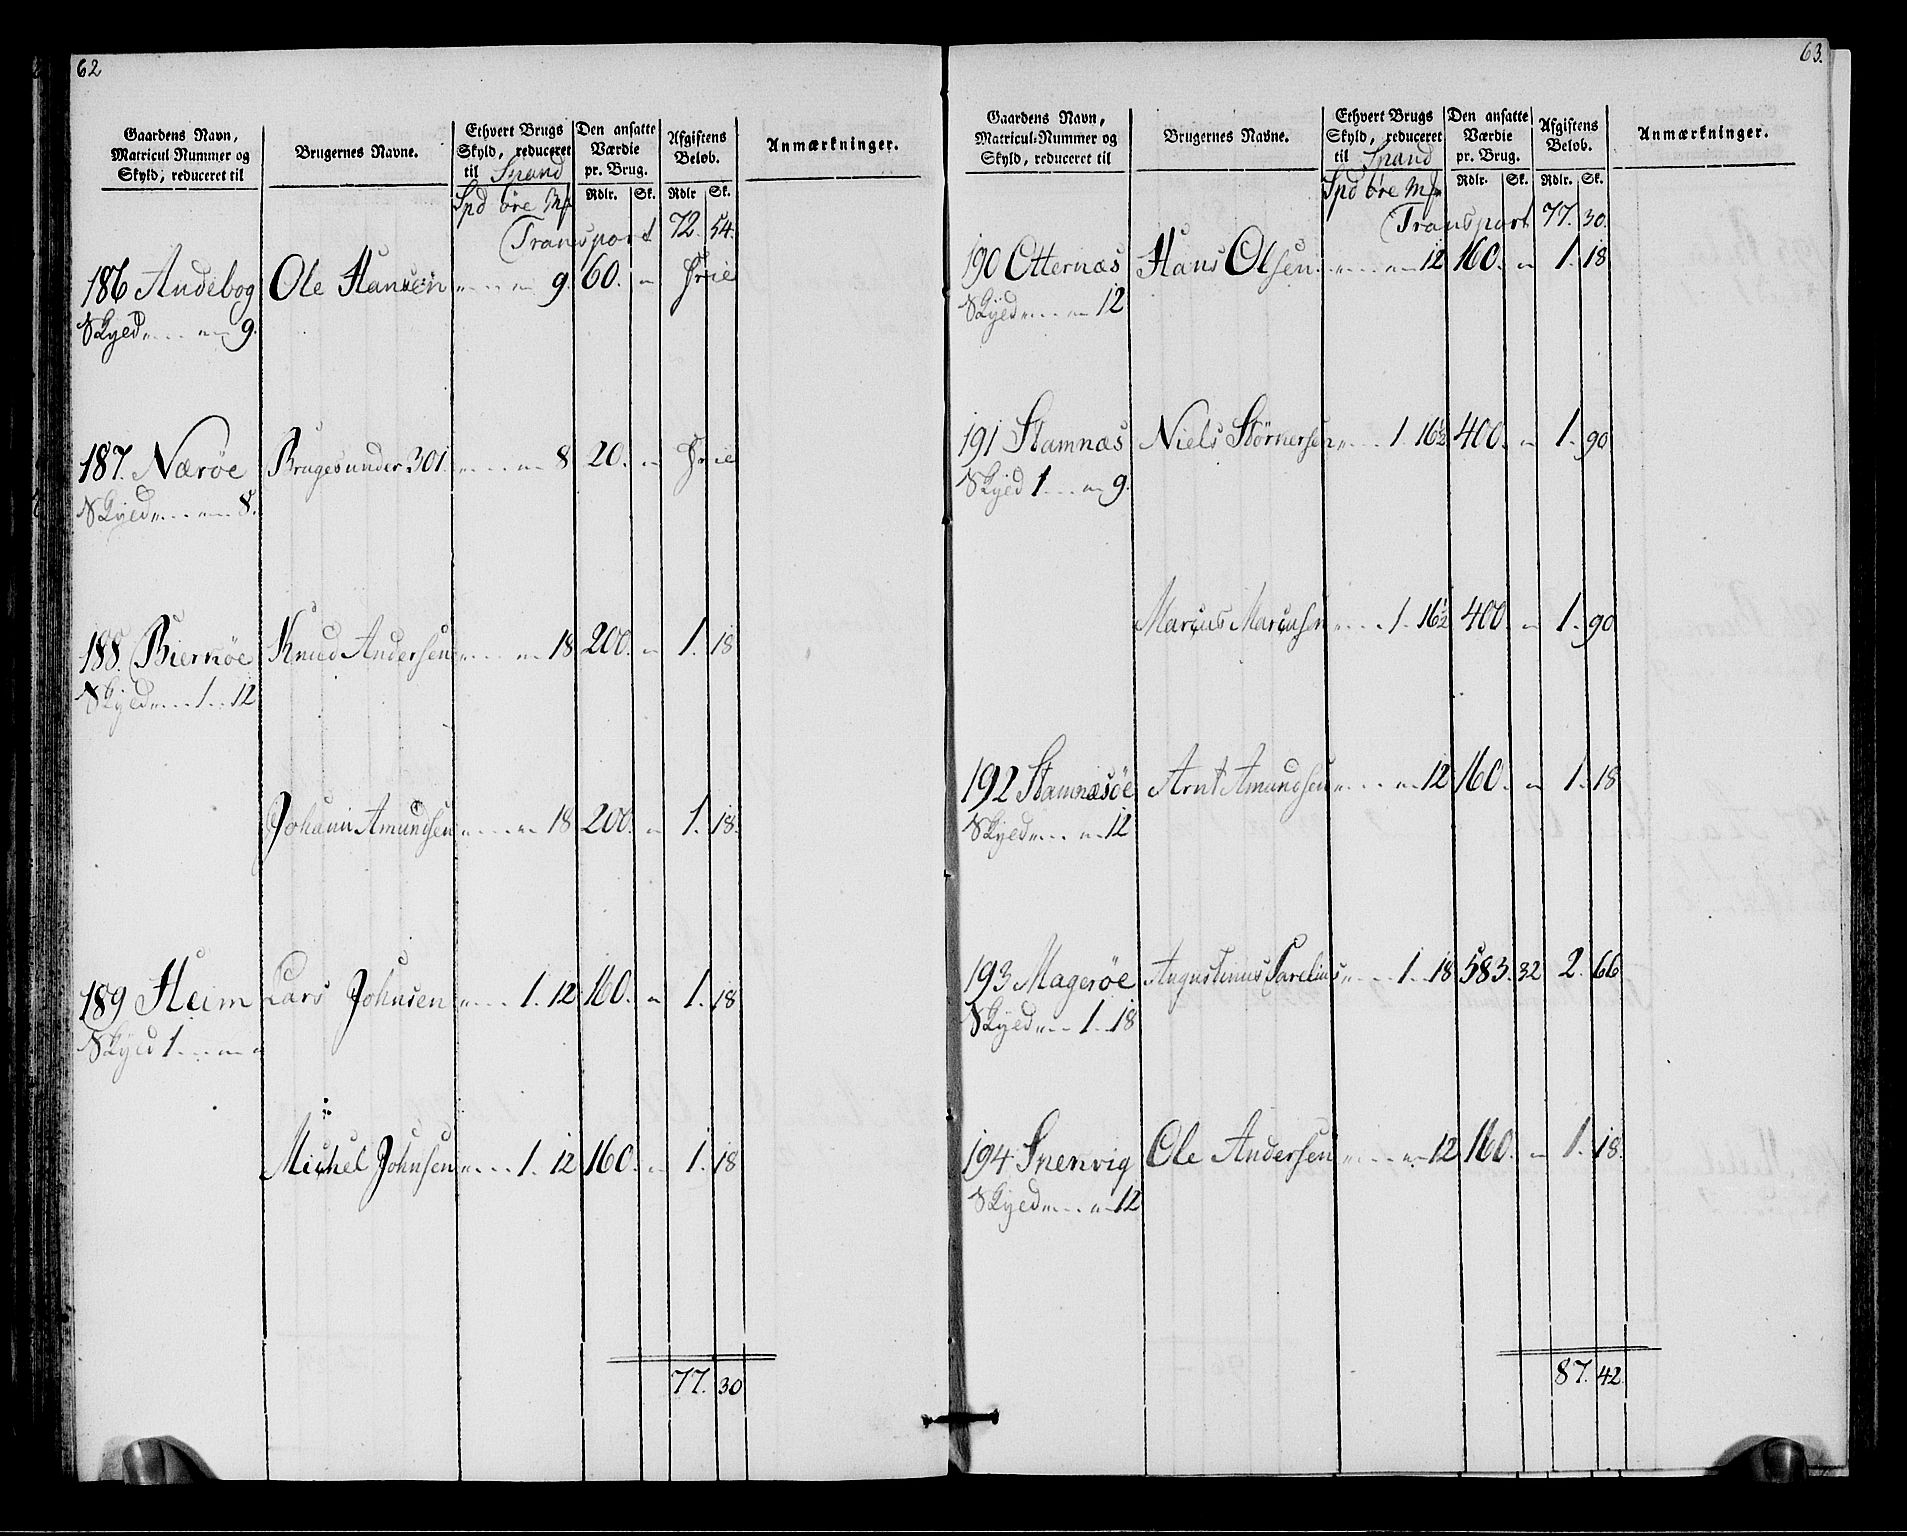 62
Gaardens Navn, Matricul Nummer og Skyld, reduceret til | Brugernes Navne. | Ethvert Brugs Skyld, reduceret til Spand | Den ansatte Værdie pr. Brug. | Afgiftens Beløb. | Anmærkninger.
Spd øre Mk | Rdlr. | Sk. | Rdlr | Sk.
Transport 72. 54.
186 Andebog Ole Hansen " 9 60. " frie
Skyld " " 9.
187. Nærøe Bruges under 301. " " 8 20. " frie
Skyld " " 8.
188. Biernøe Knud Andersen " " 18 200. " 1. 18
Skyld " 1. 12
Johan Amundsen " " 18 200. " 1. 18.
189 Heim Lars Johnsen " 1. 12 160. " 1. 18
Skyld 1 " "
Michel Johnsen " 1. 12 160. " 1. 18
77. 30
63.
Gaardens Navn, Matricul-Nummer og Skyld, reduceret til | Brugernes Navne. | Ethvert Brugs Skyld, reduceret til Spand | Den ansatte Værdie pr. Brug. | Afgiftens Beløb. | Anmærkninger.
Spd øre Mk | Rdlr. | Sk. | Rdlr. | Sk.
Transport 77. 30.
190 Otternæs Hans Olsen " " 12 160. " 1. 18
Skyld " " 12
191 Stamnæs Niels Størkersen " 1. 16½ 400. " 1. 90
Skyld 1 " 9.
Marcus Marcusen " 1. 16½ 400. " 1. 90
192 Stamnæsøe Arnt Amundsen " " 12 160. " 1. 18
Skyld " " 12
193 Magerøe Augustinus Carelius " 1. 18 583. 32 2. 66
Skyld " 1. 18
194 Snenvig Ole Andersen " " 12 160. " 1. 18.
Skyld " " 12
87. 42.